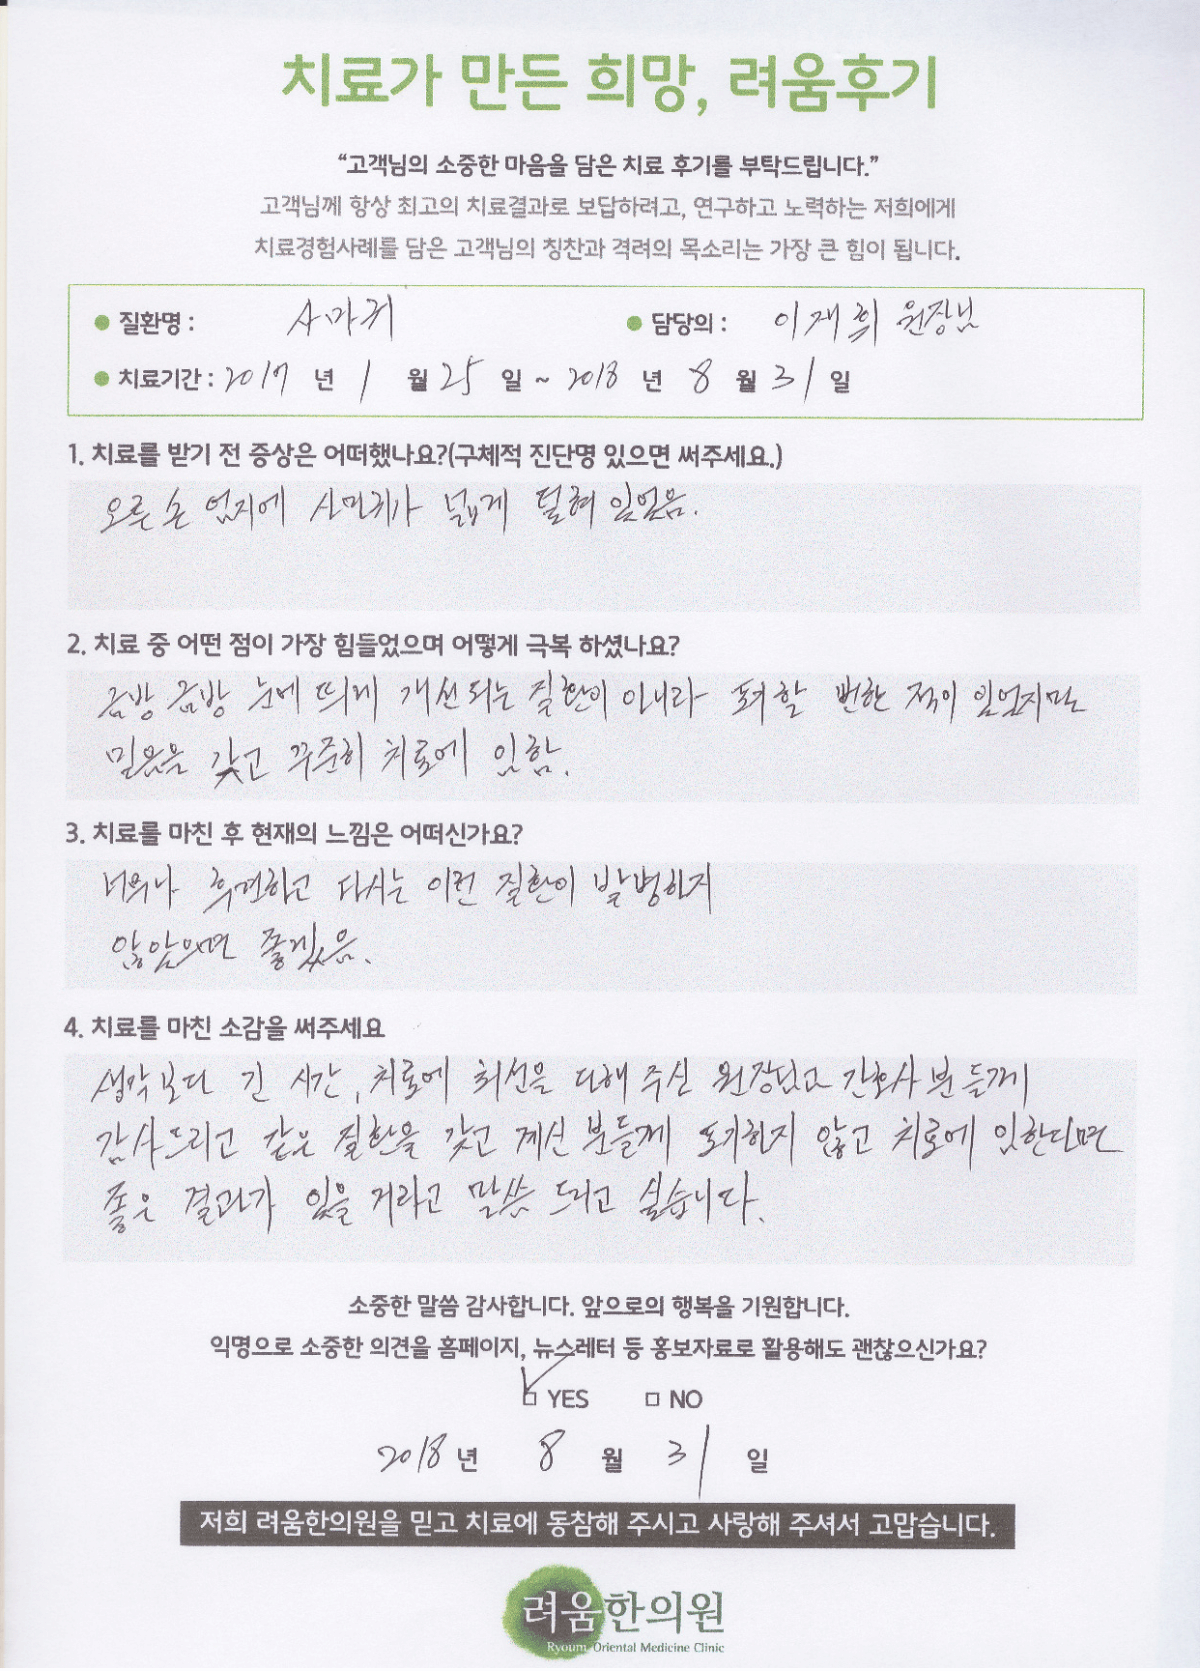 치료가 만든 희망, 려움후기
“고객님의 소중한 마음을 담은 치료 후기를 부탁드립니다.”
고객님께 항상 최고의 치료결과로 보답하려고, 연구하고 노력하는 저희에게
치료경험사례를 담은 고객님의 칭찬과 격려의 목소리는 가장 큰 힘이 됩니다.
질환명 : 사마귀 담당의 : 이재휘 원장님
치료기간 : 2017 년 1 월 25 일 ~ 2018 년 8 월 31 일
1. 치료를 받기 전 증상은 어떠했나요?(구체적 진단명 있으면 써주세요.)
오른손 엄지에 사마귀가 넓게 덮혀 있었음.
2. 치료 중 어떤 점이 가장 힘들었으며 어떻게 극복 하셨나요?
금방 금방 눈에 띄게 개선되는 질환이 아니라 포기할 번한 적이 있었지만
믿음을 갖고 꾸준히 치료에 임함.
3. 치료를 마친 후 현재의 느낌은 어떠신가요?
너무나 후련하고 다시는 이런 질환이 발병하지
않았으면 좋겠음.
4. 치료를 마친 소감을 써주세요
생각보다 긴 시간, 치료에 최선을 다해 주신 원장님과 간호사분들께
감사드리고 같은 질환을 갖고 계신 분들께 포기하지 않고 치료에 임한다면
좋은 결과가 있을 거라고 말씀 드리고 싶습니다.
소중한 말씀 감사합니다. 앞으로의 행복을 기원합니다.
익명으로 소중한 의견을 홈페이지, 뉴스레터 등 홍보자료로 활용해도 괜찮으신가요?
YES NO
2018 년 8 월 31 일
저희 려움한의원을 믿고 치료에 동참해 주시고 사랑해 주셔서 고맙습니다.
려움한의원
Ryoum Oriental Medicine Clinic